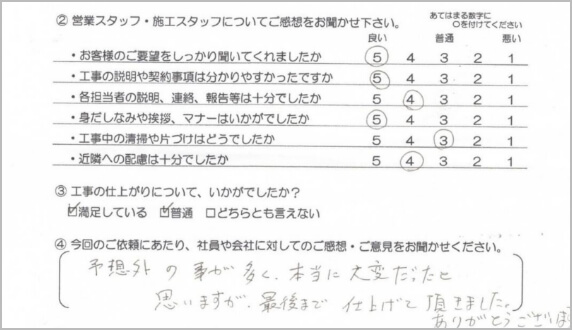 ② 営業スタッフ・施工スタッフについてご感想をお聞かせ下さい。 あてはまる数字に
○を付けてください
良い 普通 悪い
・お客様のご要望をしっかり聞いてくれましたか 5 4 3 2 1
・工事の説明や契約事項は分かりやすかったですか 5 4 3 2 1
・各担当者の説明、連絡、報告等は十分でしたか 5 4 3 2 1
・身だしなみや挨拶、マナーはいかがでしたか 5 4 3 2 1
・工事中の清掃や片づけはどうでしたか 5 4 3 2 1
・近隣への配慮は十分でしたか 5 4 3 2 1
③ 工事の仕上がりについて、いかがでしたか？
☑満足している ☑普通 □どちらとも言えない
④ 今回のご依頼にあたり、社員や会社に対してのご感想・ご意見をお聞かせください。
予想外の事が多く、本当に大変だったと
思いますが、最後まで仕上げて頂きました。
ありがとうござい